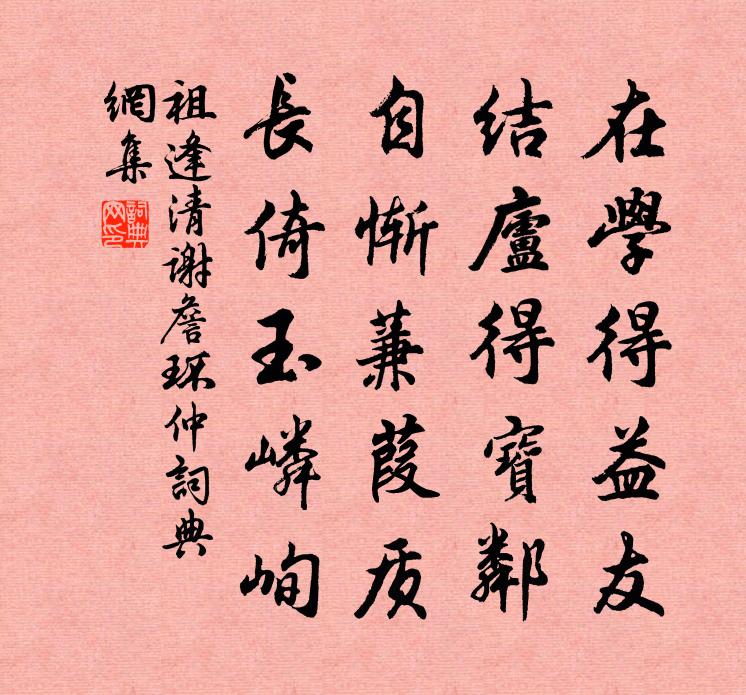 在學得益友
結廬得寶鄰
自慚蒹葭质
長倚玉嶙峋
祖逢清谢詹琛仲詞典
網集
詞典網印